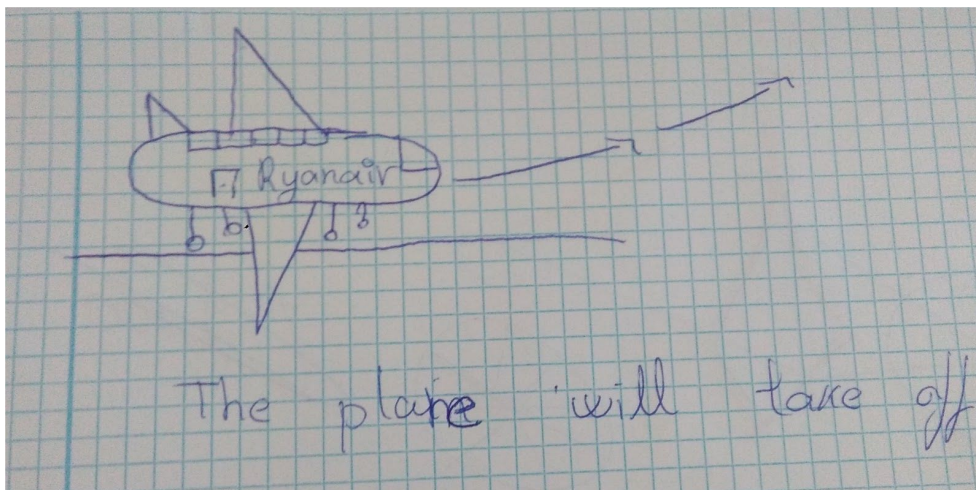 Ryanair
The plane will take off